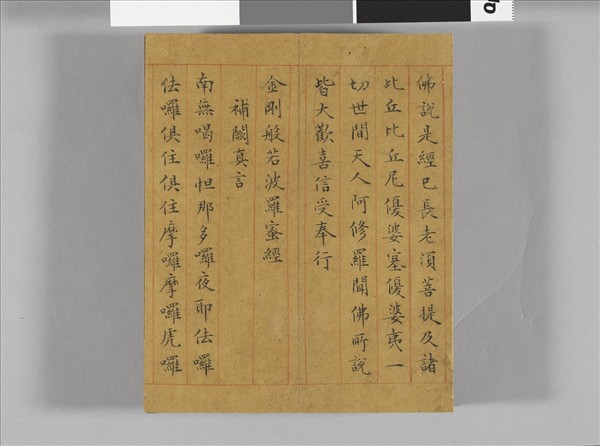 佛說是經已長老須菩提及諸
比丘比丘尼優婆塞優婆夷一
切世間天人阿修羅聞佛所說
皆大歡喜信受奉行
金剛般若波羅蜜經
補闕真言
南無喝囉怛那多囉夜耶佉囉
佉囉俱住俱住摩囉摩囉虎囉